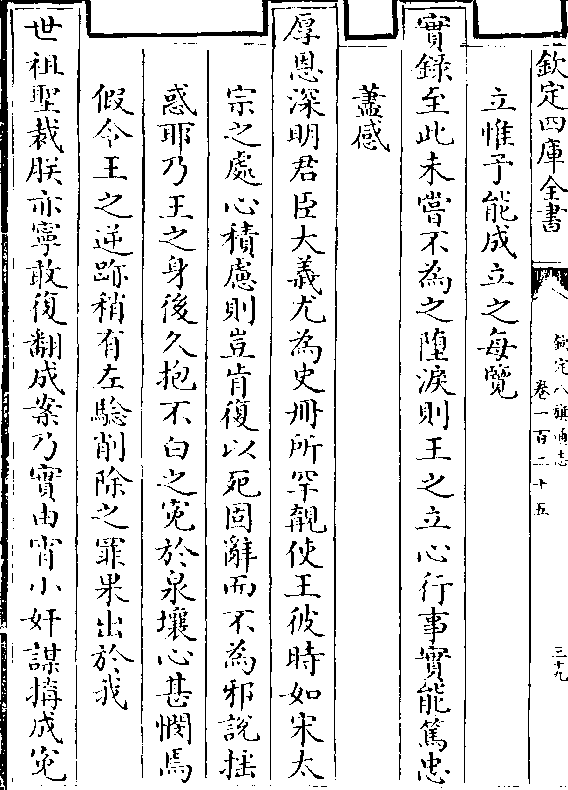 欽定四庫全書
欽定八旗通志
卷一百二十五
三十九
立惟予能成立之每覽
實錄至此未嘗不為之墮淚則王之立心行事實能篤忠
藎感
厚恩深明君臣大義尤為史冊所罕覯使王彼時如宋太
宗之處心積慮則豈肯復以死固辭而不為邪說搖
惑耶乃王之身後久抱不白之冤於泉壤心甚憫焉
假令王之逆跡稍有左驗削除之罪果出於我
世祖聖裁朕亦寧敢復翻成案乃實由宵小奸謀搆成冤